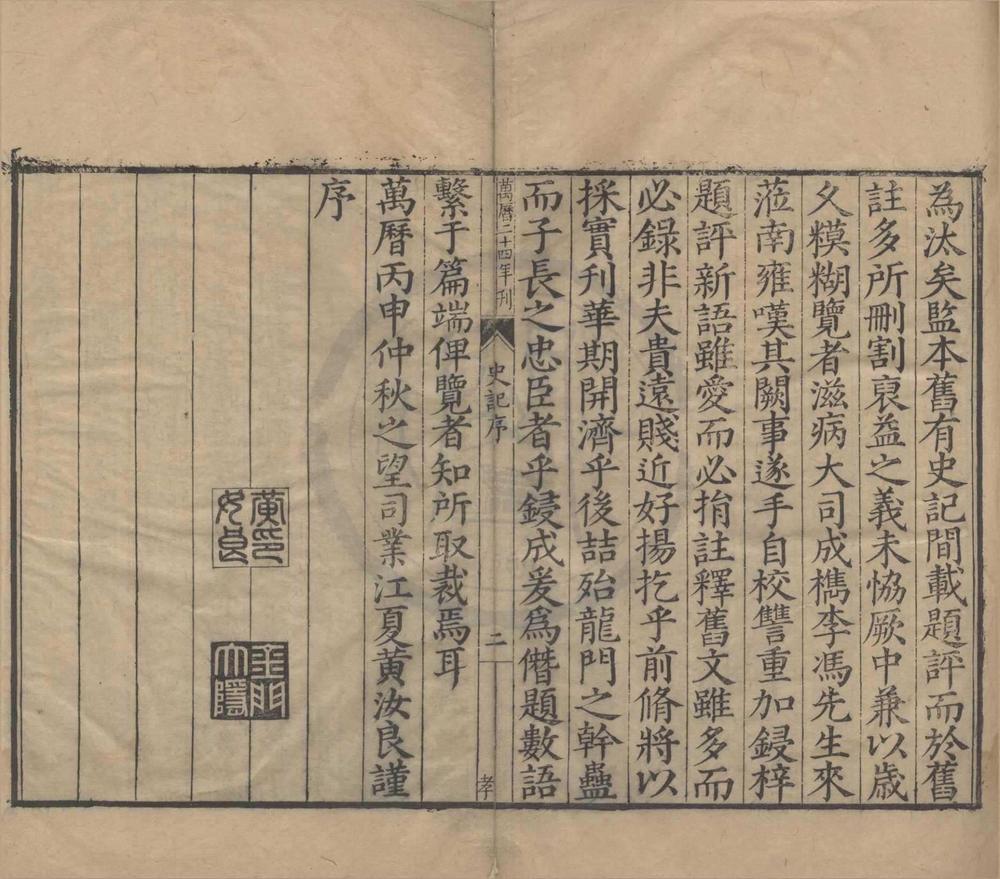 為汰矣監本舊有史記間載題評而於舊
註多所刪割裒益之義未恊厥中兼以歲
久糢糊覽者滋病大司成檇李馮先生來
蒞南雍嘆其闕事遂手自校讐重加鋟梓
題評新語雖愛而必捐註釋舊文雖多而
必錄非夫貴遠賤近好揚扢乎前脩將以
採實刊華期開濟乎後喆殆龍門之幹蠱
而子長之忠臣者乎鋟成爰爲僭題數語
萬曆二十四年刊
史記序
二
孝
繫于篇端俾覽者知所取裁焉耳
萬曆丙申仲秋之望司業江夏黃汝良謹
序
黃印
汝良
金門
大隱